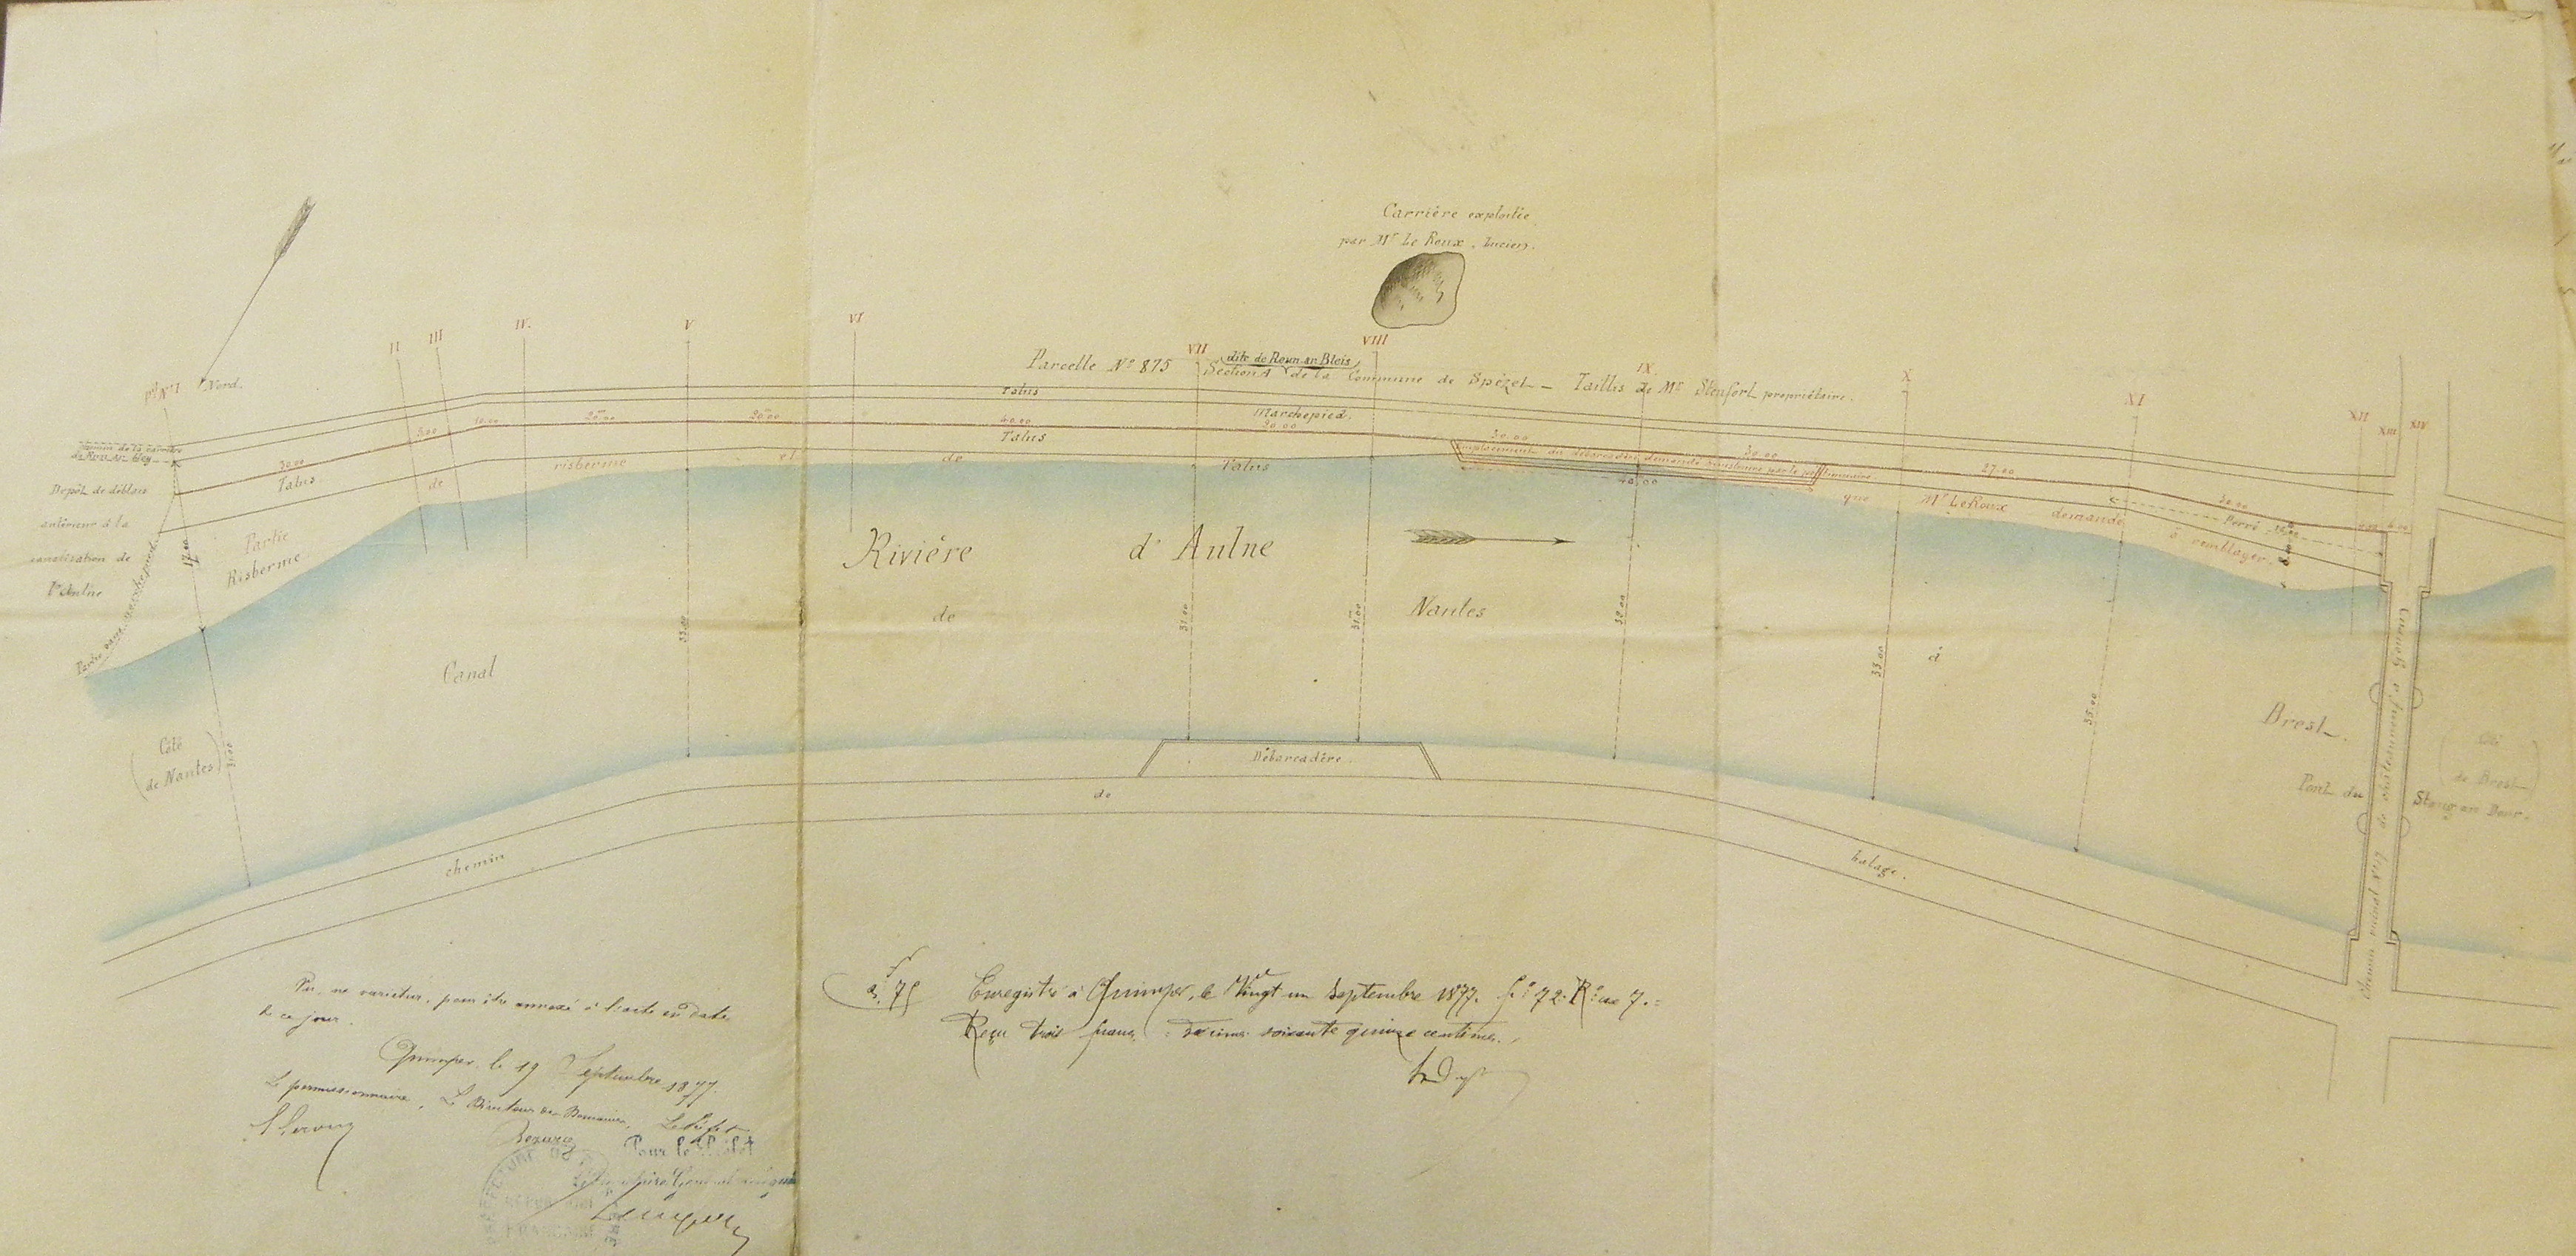 Carrière exploitée
par Mr Le Roux, Lucien.
Pf No I
II
III
IV.
V
VI
VII
VIII
IX.
X
XI
XII
XIII
XIV
Nord.
Parcelle No 875 Section A dite de Roun ar Bleis de la Commune de Spézet — Taillis de Mr Stenfort propriétaire.
Talus
Marchepied.
Chemin de la carrière
30.00
5.00
10.00
20.00
20.00
40.00
20.00
30.00
30.00
27.00
30.00
6.00
Talus
Emplacement du débarcadère demandé
40.00
Dépôt de déblais
antérieur à la
canalisation de
l'Aulne
Talus de risberme et de Talus que Mr Le Roux demande à remblayer.
Perré
Partie
Risberme
17.00
Rivière d'Aulne
Canal de Nantes à Brest.
33.00
31.00
31.00
32.00
33.00
35.00
31.00
(Côté
de Nantes)
(Côté
de Brest)
Pont du Stang an Dour.
Chemin vicinal No 1 de Châteauneuf à Gourin
Débarcadère.
chemin de halage.
Vu, ne varietur, pour être annexé à l'acte en date
de ce jour.
Quimper, le 19 Septembre 1877.
Le permissionnaire, Le Directeur des Domaines, Le Préfet
L Leroux
Pour le Préfet
3,75
Enregistré à Quimper, le Vingt un Septembre 1877. fo 72 Ro Case 7.
Reçu trois francs, décimes soixante quinze centimes.
PRÉFECTURE DU
RÉPUBLIQUE
FRANÇAISE